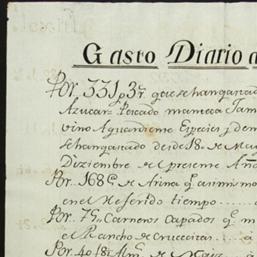 Gasto Diario d
Por, 331 p 3 r. que se han ganado
Azucar Pescado manteca Jam
vino Aguardiente Especies y dem
se han ganado desde 18 de Mar
Diziembre de el presente Año
Por 168 C. de Arina q.e asi mismo
en el Referido tiempo
Por 7 Carneros Capados q.e m
el Rancho de Crucecitas a
Por 40 Alm.s de Maiz a